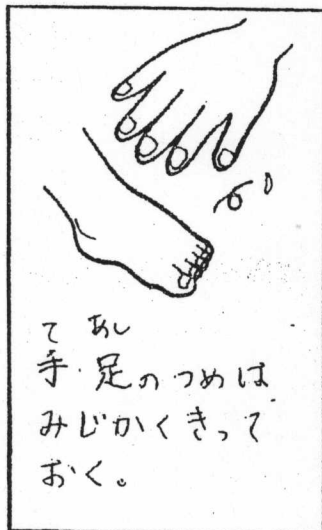 て あし
手・足のつめは
みじかくきって
おく。